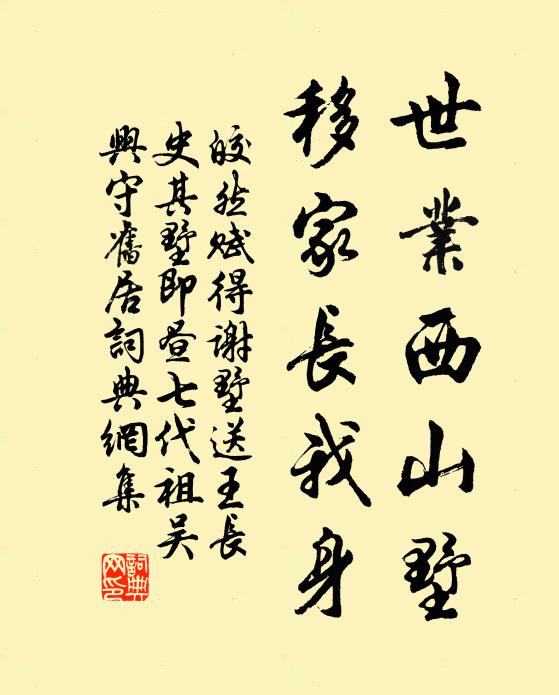 世業西山墅
移家長我身
皎然賦得謝墅送王長
史其墅即晝七代祖吳
興守舊居詞典網集
詞典
網印